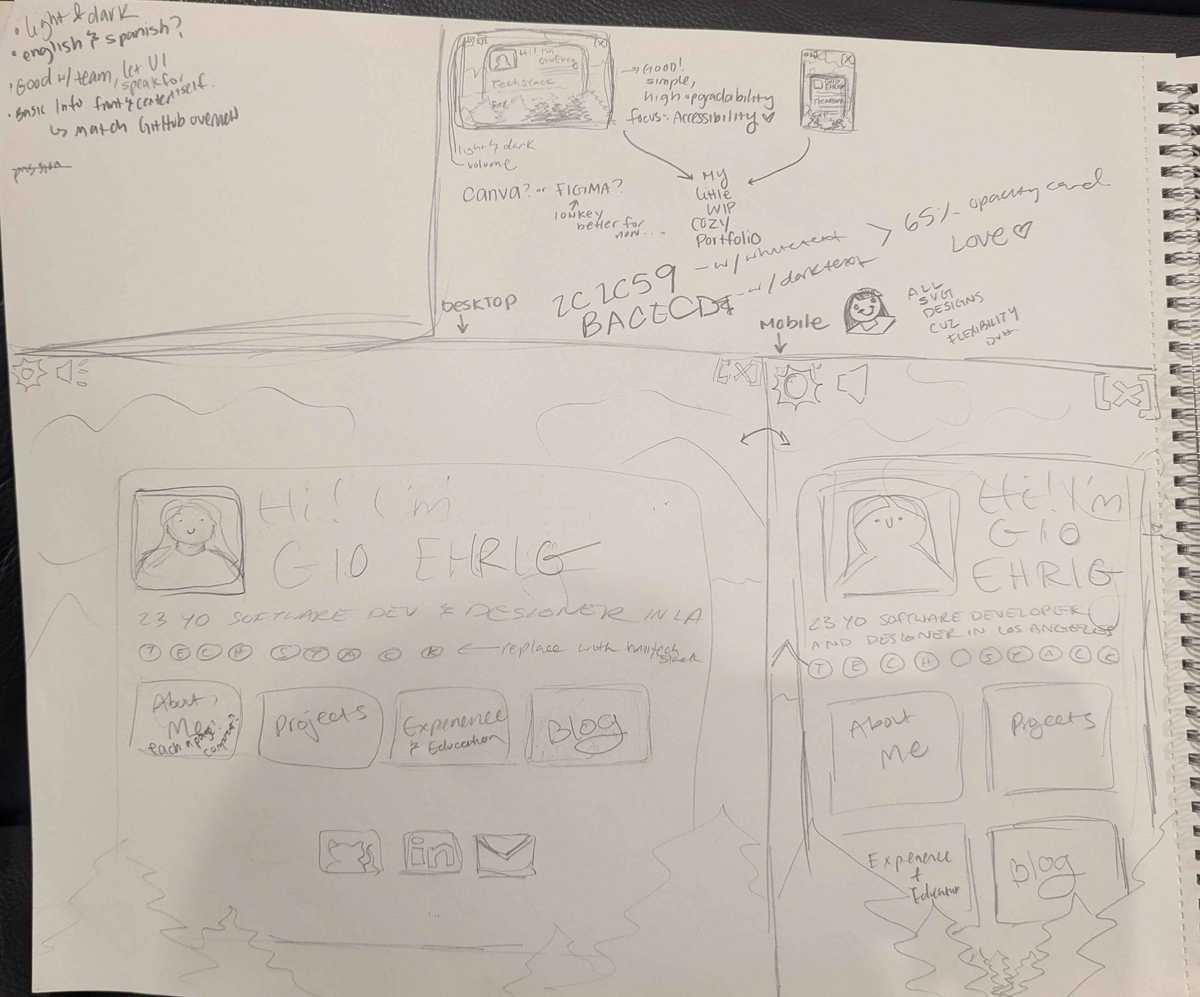 • light & dark
• english & spanish?
• Good w/ team, let UI
speak for itself.
• Basic Info front & center
↳ match GitHub overview
Hi! I'm
Techstack
→ GOOD!
simple,
high upgradability
focus: Accessibility ♡
light & dark
volume
Canva? or FIGMA?
↑
lowkey
better for
now...
My
little
WIP
cozy
Portfolio
2C2C59 – w/ white text > 65% opacity card
– w/ dark text
LOVE ♡
DESKTOP
↓
Mobile
↓
ALL
SVG
DESIGNS
CUZ
FLEXIBILITY
[X]
Hi! I'm
GIO EHRIG
23 YO SOFTWARE DEV & DESIGNER IN LA
T E C H S T A C K ← replace with
About
Me
Projects
Experience
& Education
Blog
in
[X]
Hi! I'm
GIO
EHRIG
23 YO SOFTWARE DEVELOPER
AND DESIGNER IN LOS ANGELES
T E C H S T A C K
About
Me
Projects
Experience
+
Blog